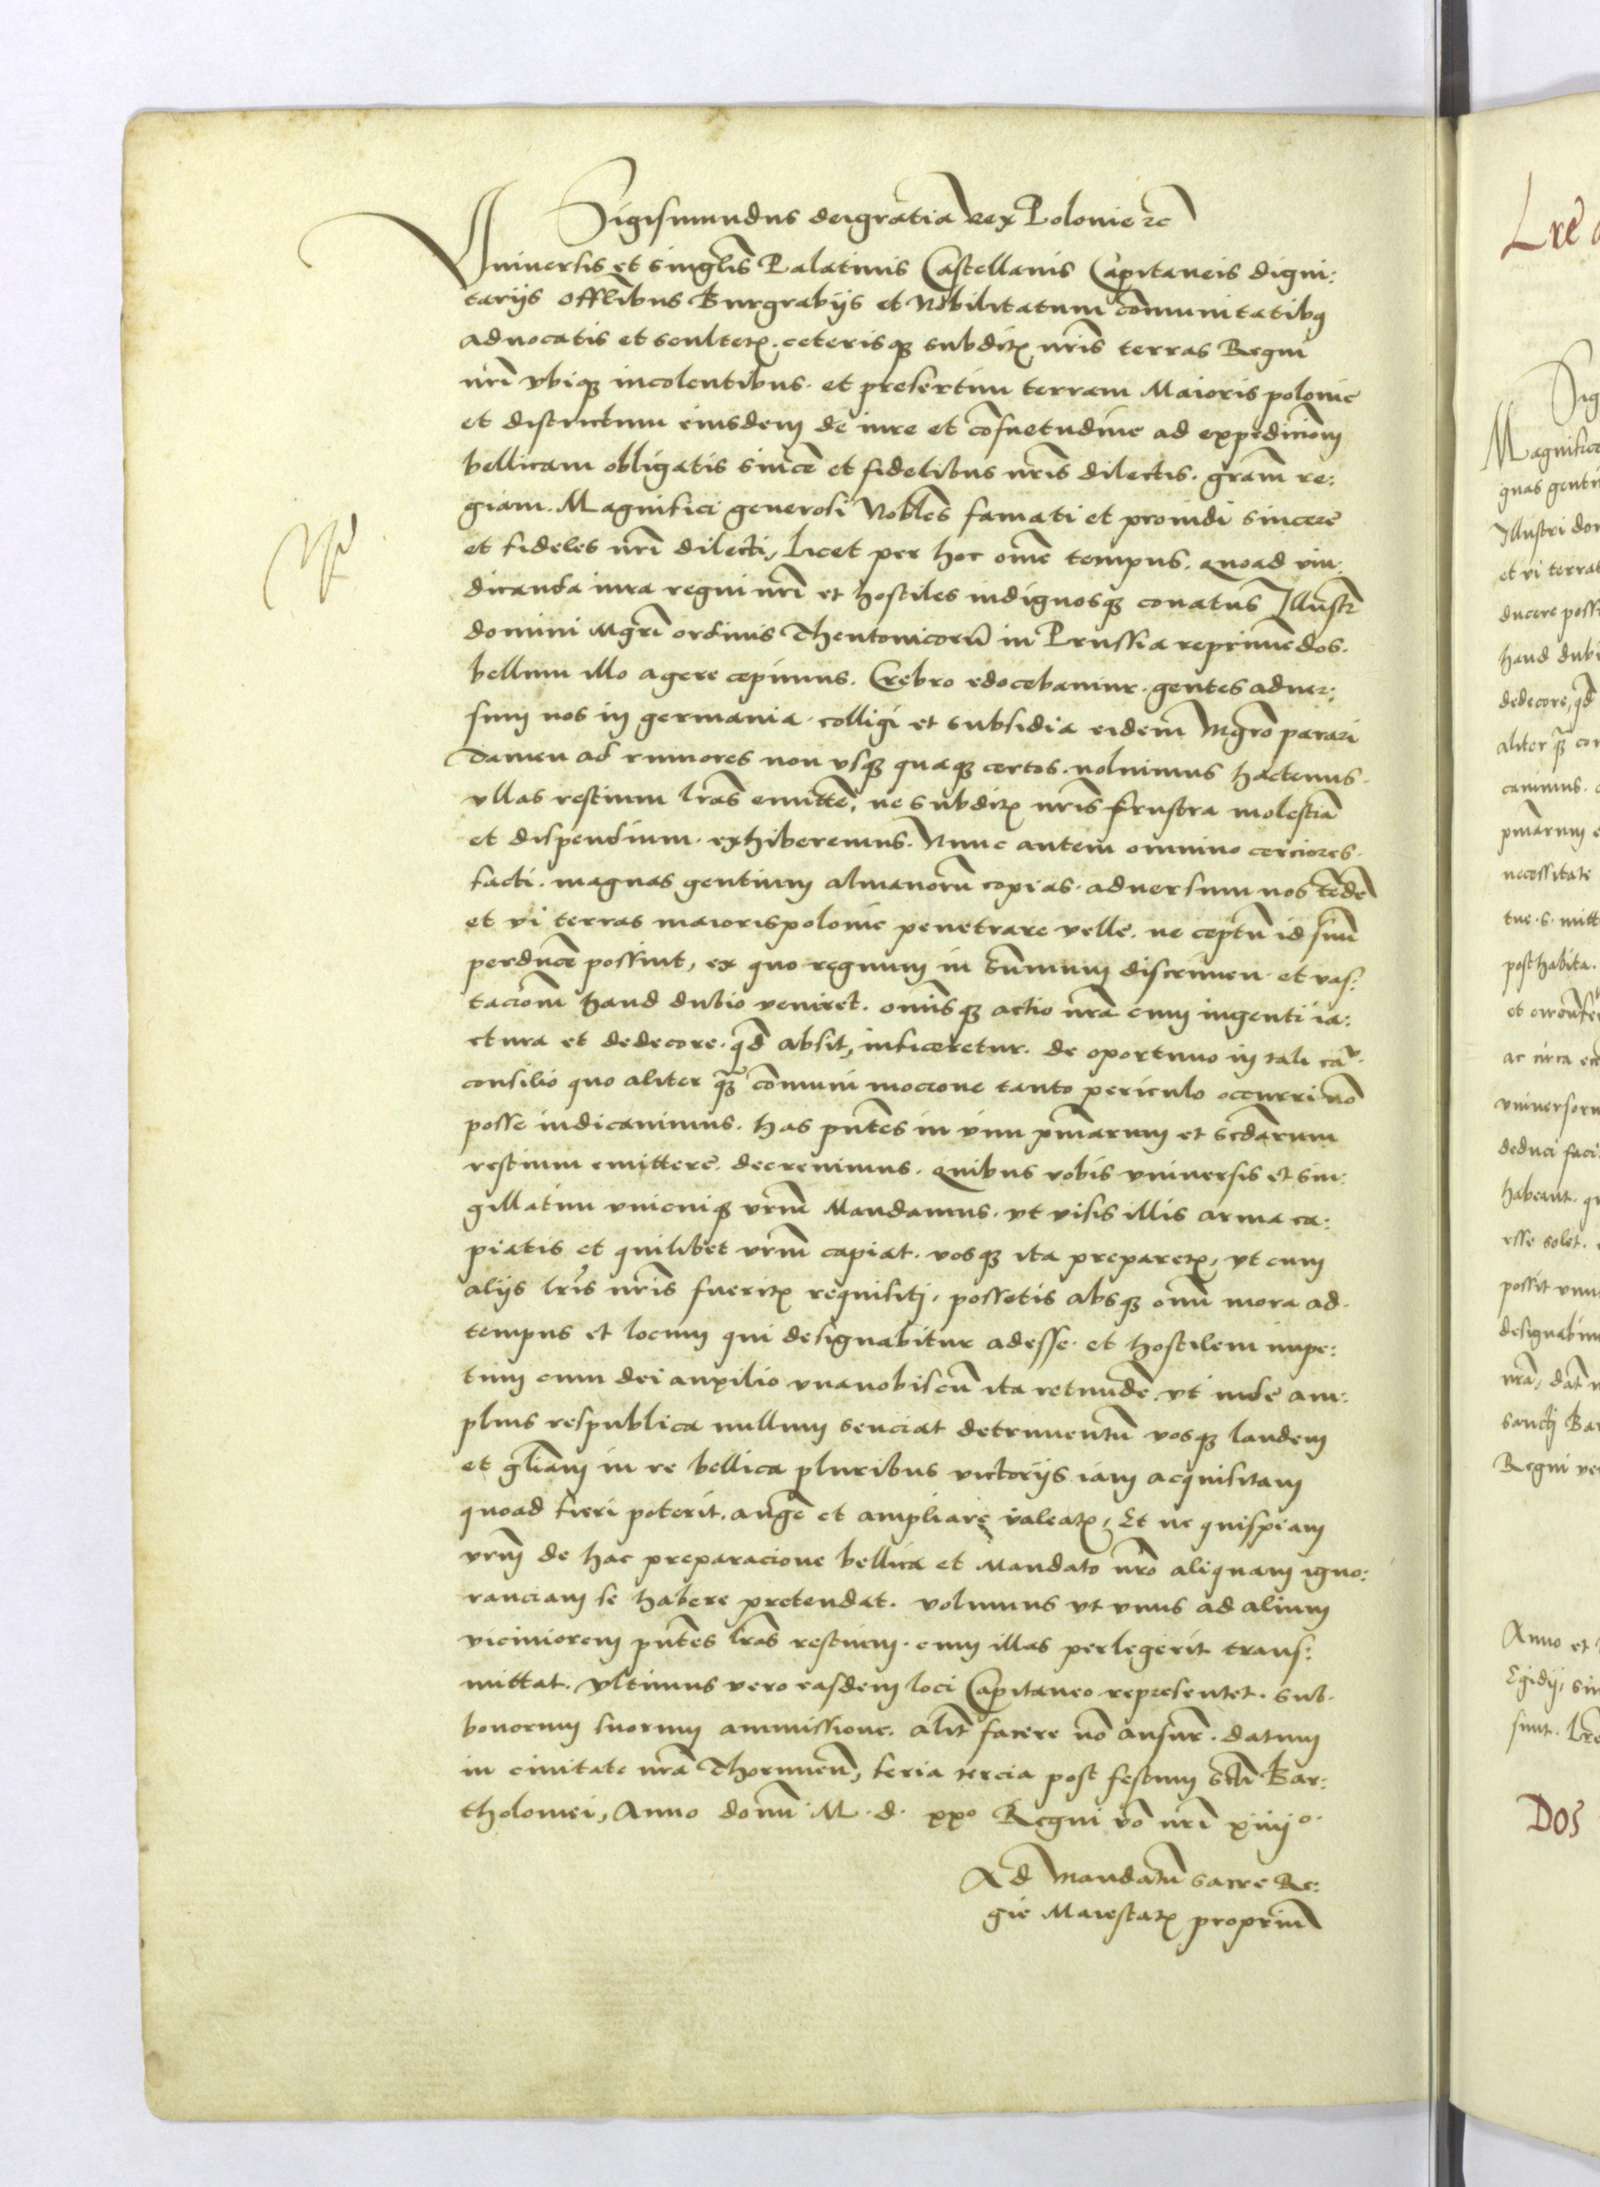 Sigismundus dei gratia rex Polonie rc
Vniuersis et singlis Palatinis Castellanis Capitaneis digni:
tariis officlibus Burgrabijs et Nobilitatum comunitatibus
aduocatis et scultetis. ceterisque subditis nris terras Regni
nri vbique incolentibus. et presertim terram Maioris polonie
et districtum eiusdem de iure et consuetudine ad expedicionem
bellicam obligatis since et fidelibus nris dilectis. gram re:
giam. Magnifici generosi Nobles famati et prouidi sincere
et fideles nri dilecti, Licet per hoc ome tempus. quoad vin:
dicanda iura regni nri et hostiles indignosque conatus Illustr
domini Mgri ordinis Theutonicoru in Prussia reprimedos.
bellum illo agere cepimus. Crebro edocebamur. gentes aduer:
sum nos in germania. colligi et subsidia eidem Mgro parari
Tamen ad rumores non vsque quaque certos. noluimus hactenus.
vllas restium lras emitte, ne subditis nris frustra molestia
et dispendium. exhiberemus. Nunc autem omnino cerciores.
facti. magnas gentium almanoru copias. aduersum nos tede
et vi terras maiorispolonie penetrare velle. ne ceptu id suu
perduce possint, ex quo regnum in summum discrimen. et vas:
tacionem haud dubio veniret. omisque actio nra cum ingenti ia:
ctura et dedecore. qd absit, inficeretur. de oportuno in tali ca.
consilio quo aliter qua comuni mocione tanto periculo occurri no
posse iudicauimus. has pntes in vim pmarum et scdarum
restium emittere. decreuimus. Quibus vobis vniuersis et sin:
gillatim vnicuique vrm Mandamus. vt visis illis arma ca:
piatis et quilibet vrm capiat. vosque ita preparetis, vt cum
alijs lris nris fueritis requisiti, possetis absque omi mora ad.
tempus et locum qui designabitur adesse. et hostilem impe:
tum cum dei auxilio vna nobiscu ita retunde vt inde am:
plius respublica nullum senciat detrimentu vosque laudem
et gliam in re bellica pluribus victorijs iam acquisitam
quoad fieri poterit. auge et ampliare valeatis, Et ne quispiam
vrm de hac preparacione bellica et Mandato nro aliquam igno:
ranciam se habere pretendat. volumus vt vnus ad alium
viciniorem pntes lras restium. cum illas perlegerit trans:
mittat. Vltimus vero easdem loci Capitaneo representet. sub.
bonorum suorum ammissione. alit facere no ausur. datum
in ciuitate nra Thorunen, feria tercia post festum scti Bar:
tholomei, Anno domi M. d. xxo Regni vo nri xiiijo.
Ad Mandatu sacre Re:
gie Maiestatis propriu